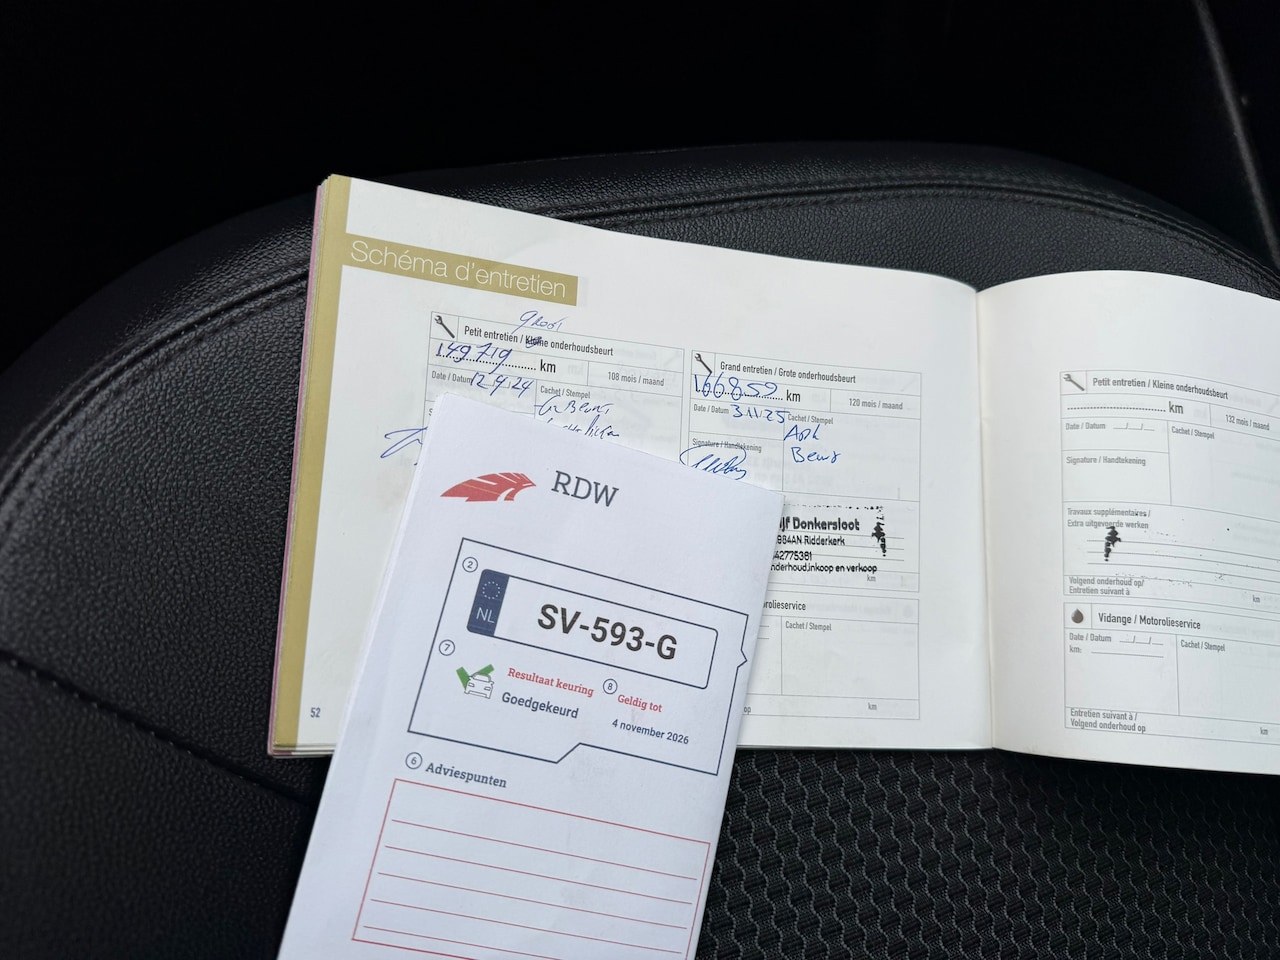 Schéma d'entretien
Groot
Petit entretien / Kleine onderhoudsbeurt
149719 km
108 mois / maand
Date / Datum 12.4.24
Cachet / Stempel
Gr Beurt
Grand entretien / Grote onderhoudsbeurt
166859 km
120 mois / maand
Date / Datum 3.11.25
Cachet / Stempel
Apk
Beurt
Signature / Handtekening
jf Donkersloot
884AN Ridderkerk
42775381
nderhoud.inkoop en verkoop
km
orolieservice
Cachet / Stempel
op
km
52
Petit entretien / Kleine onderhoudsbeurt
km
132 mois / maand
Date / Datum
Cachet / Stempel
Signature / Handtekening
Travaux supplémentaires /
Extra uitgevoerde werken
Volgend onderhoud op/
Entretien suivant à
km
Vidange / Motorolieservice
Date / Datum
km:
Cachet / Stempel
Entretien suivant à /
Volgend onderhoud op
km
RDW
2
NL
SV-593-G
7
Resultaat keuring
Goedgekeurd
8
Geldig tot
4 november 2026
6 Adviespunten